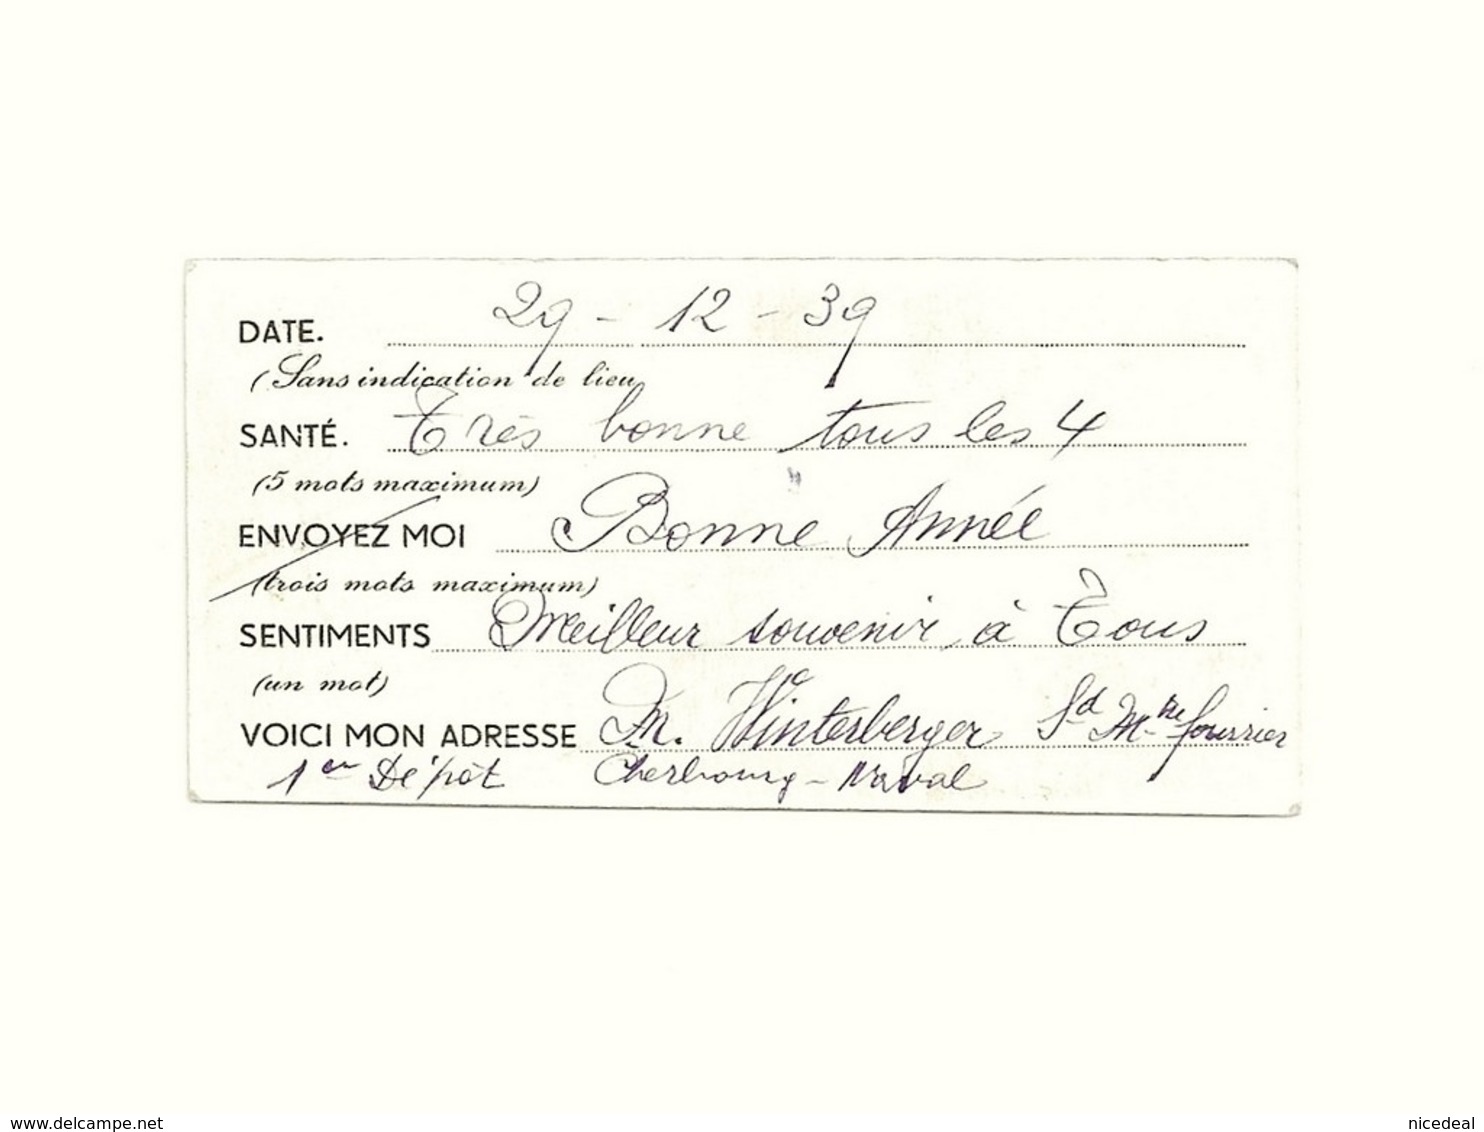 DATE. 29 - 12 - 39
(Sans indication de lieu
SANTÉ. Très bonne tous les 4
(5 mots maximum)
ENVOYEZ MOI Bonne Année
(trois mots maximum)
SENTIMENTS Meilleur souvenir à Tous
(un mot)
VOICI MON ADRESSE M. Winterberger Sd Mtre fourrier
1er Dépôt Cherbourg - Naval
www.delcampe.net nicedeal